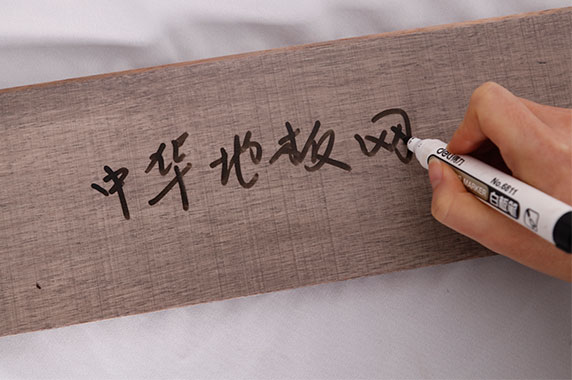 中华地板网
deli得力
No.6811
白板笔